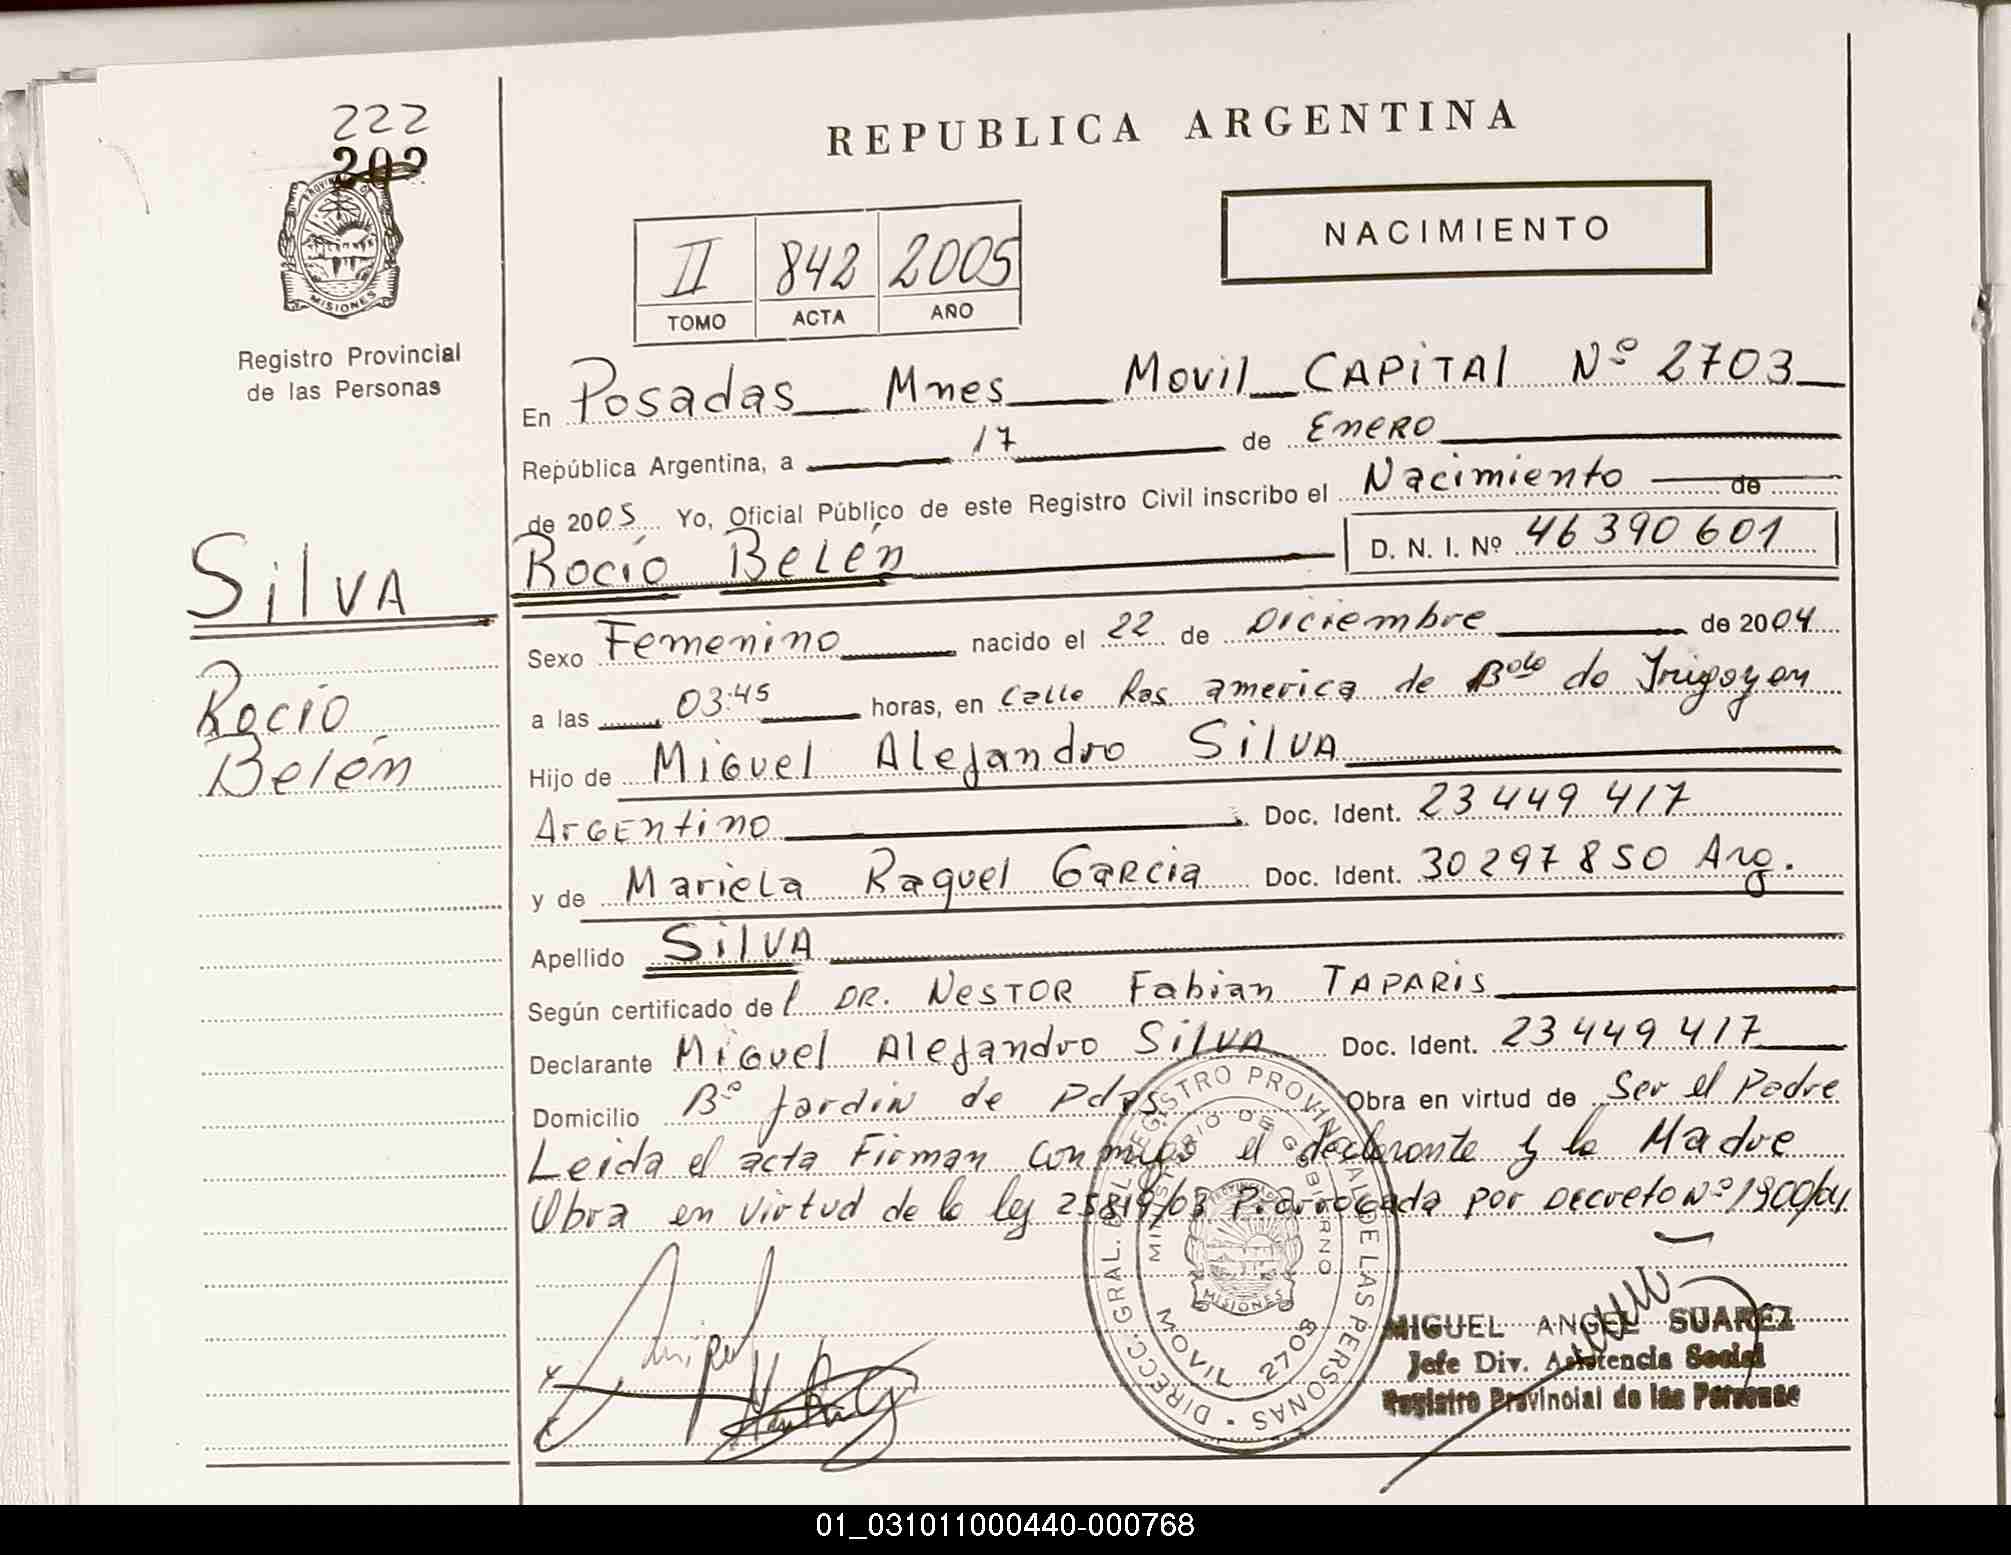 222
202
PROVINCIA DE
MISIONES
Registro Provincial
de las Personas
REPUBLICA ARGENTINA
NACIMIENTO
II 842 2005
TOMO ACTA AÑO
En Posadas Mnes Movil CAPITAL Nº 2703
República Argentina, a 17 de Enero
de 2005 Yo, Oficial Público de este Registro Civil inscribo el Nacimiento de
Rocío Belén D. N. I. Nº 46390601
Silva
Rocío
Belén
Sexo Femenino nacido el 22 de Diciembre de 2004
a las 03:45 horas, en Calle Ros america de Bdo de Irigoyen
Hijo de Miguel Alejandro Silva
Argentino Doc. Ident. 23449417
y de Mariela Raquel Garcia Doc. Ident. 30297850 Arg.
Apellido Silva
Según certificado de l DR. Nestor Fabian TAPARIS
Declarante Miguel Alejandro Silva Doc. Ident. 23449417
Domicilio Bº Jardin de Pdas Obra en virtud de Ser el Padre
Leida el acta Firman conmigo el declarante y la Madre
Obra en virtud de la ley 25819/03 Prorrogada por Decreto Nº 1900/04.
DIRECC. GRAL. DEL REGISTRO PROVINCIAL DE LAS PERSONAS
MINISTERIO DE GOBIERNO
MISIONES
MOVIL 2703
MIGUEL ANGEL SUAREZ
Jefe Div. Asistencia Social
Registro Provincial de las Personas
01_031011000440-000768